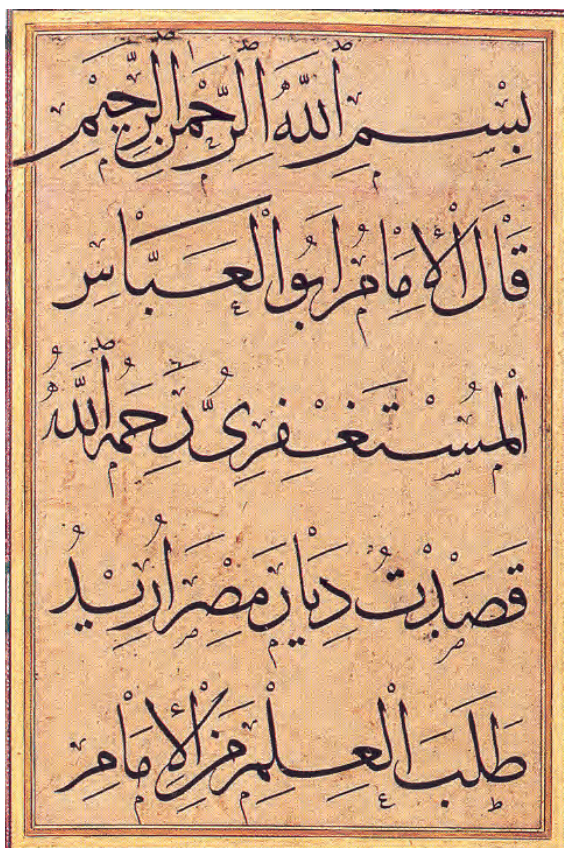 بِسْمِ اللهِ الرَّحْمٰنِ الرَّحِيمِ
قَالَ الْإِمَامُ اَبُو الْعَبَّاسِ
الْمُسْتَغْفِرِىُّ رَحِمَهُ اللّٰهُ
قَصَدْتُ دِيَارَ مِصْرَ اُرِيدُ
طَلَبَ الْعِلْمِ مِنَ الْإِمَامِ